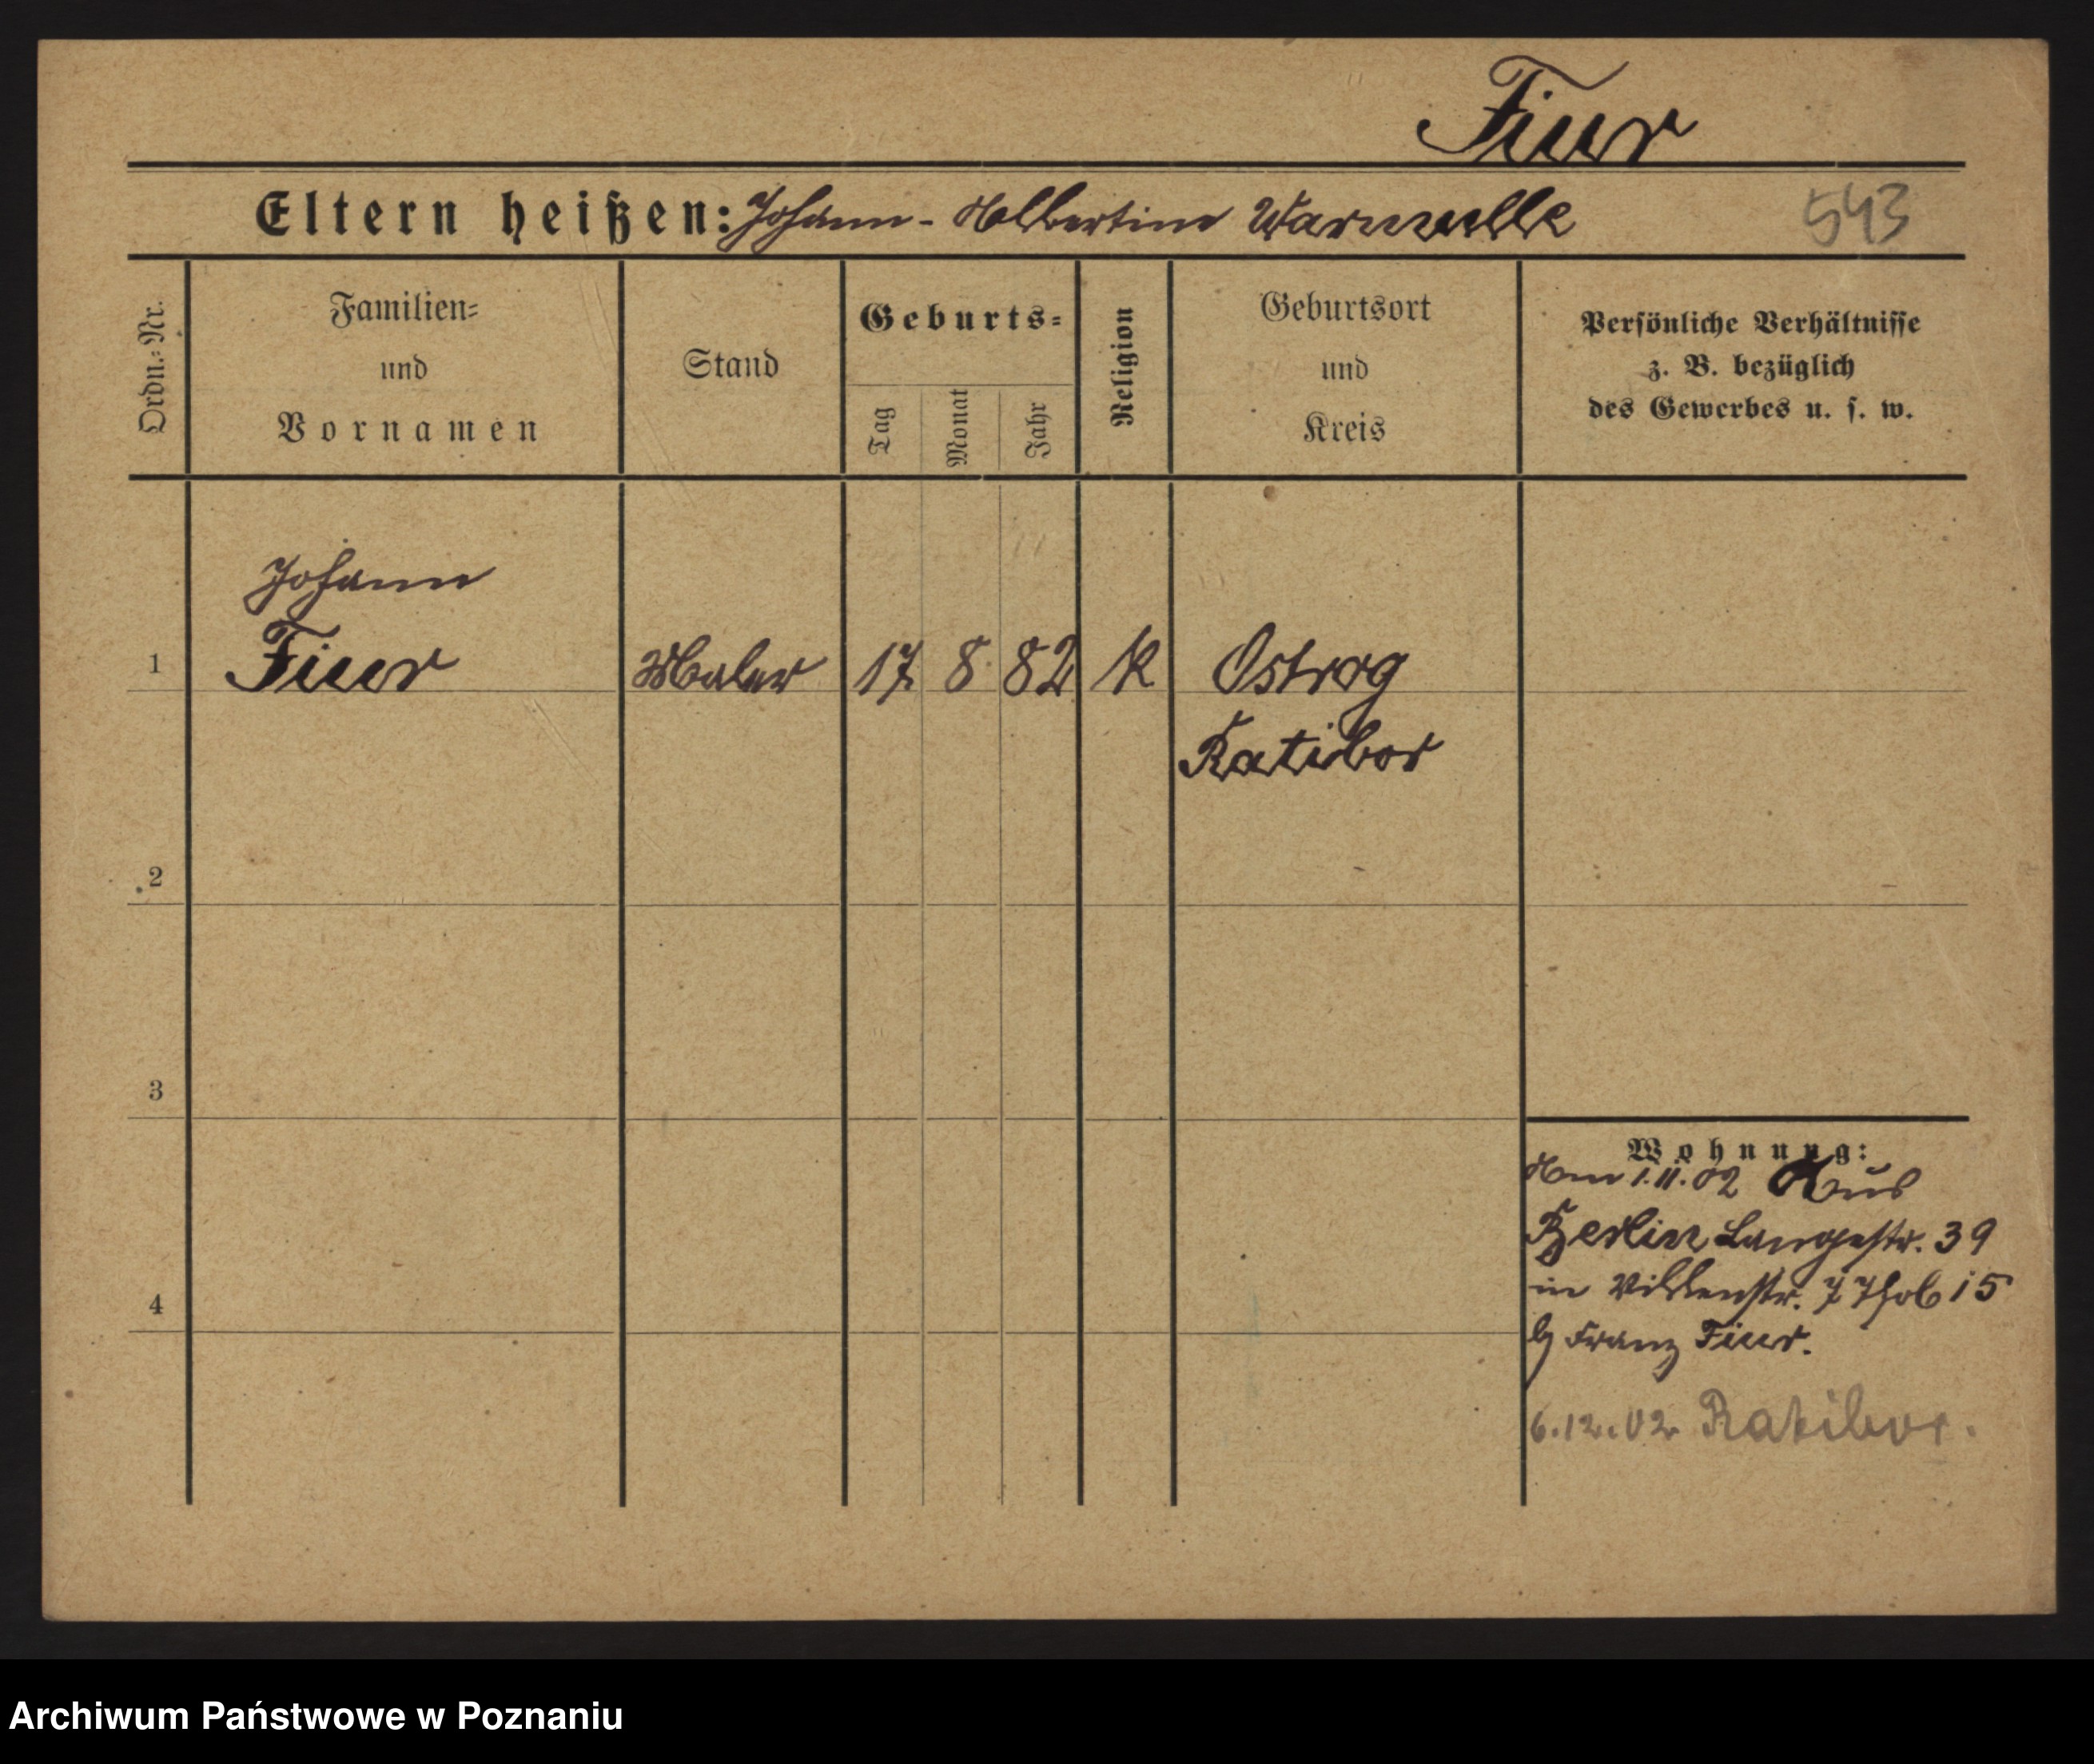 Fiur
Eltern heißen: Johann - Albertine Warnulle 543
Ordn.-Nr.
Familien-
und
Vornamen
Stand
Geburts-
Tag Monat Jahr
Religion
Geburtsort
und
Kreis
Persönliche Verhältnisse
z. B. bezüglich
des Gewerbes u. s. w.
Johann
1 Fiur Maler 17 8 82 K Ostrog
Ratibor
2
3
4
Wohnung:
Am 1.11.02 Aus
Berlin Langestr. 39
in 7 15
b Franz Fiur.
6.12.02 Ratibor.
Archiwum Państwowe w Poznaniu